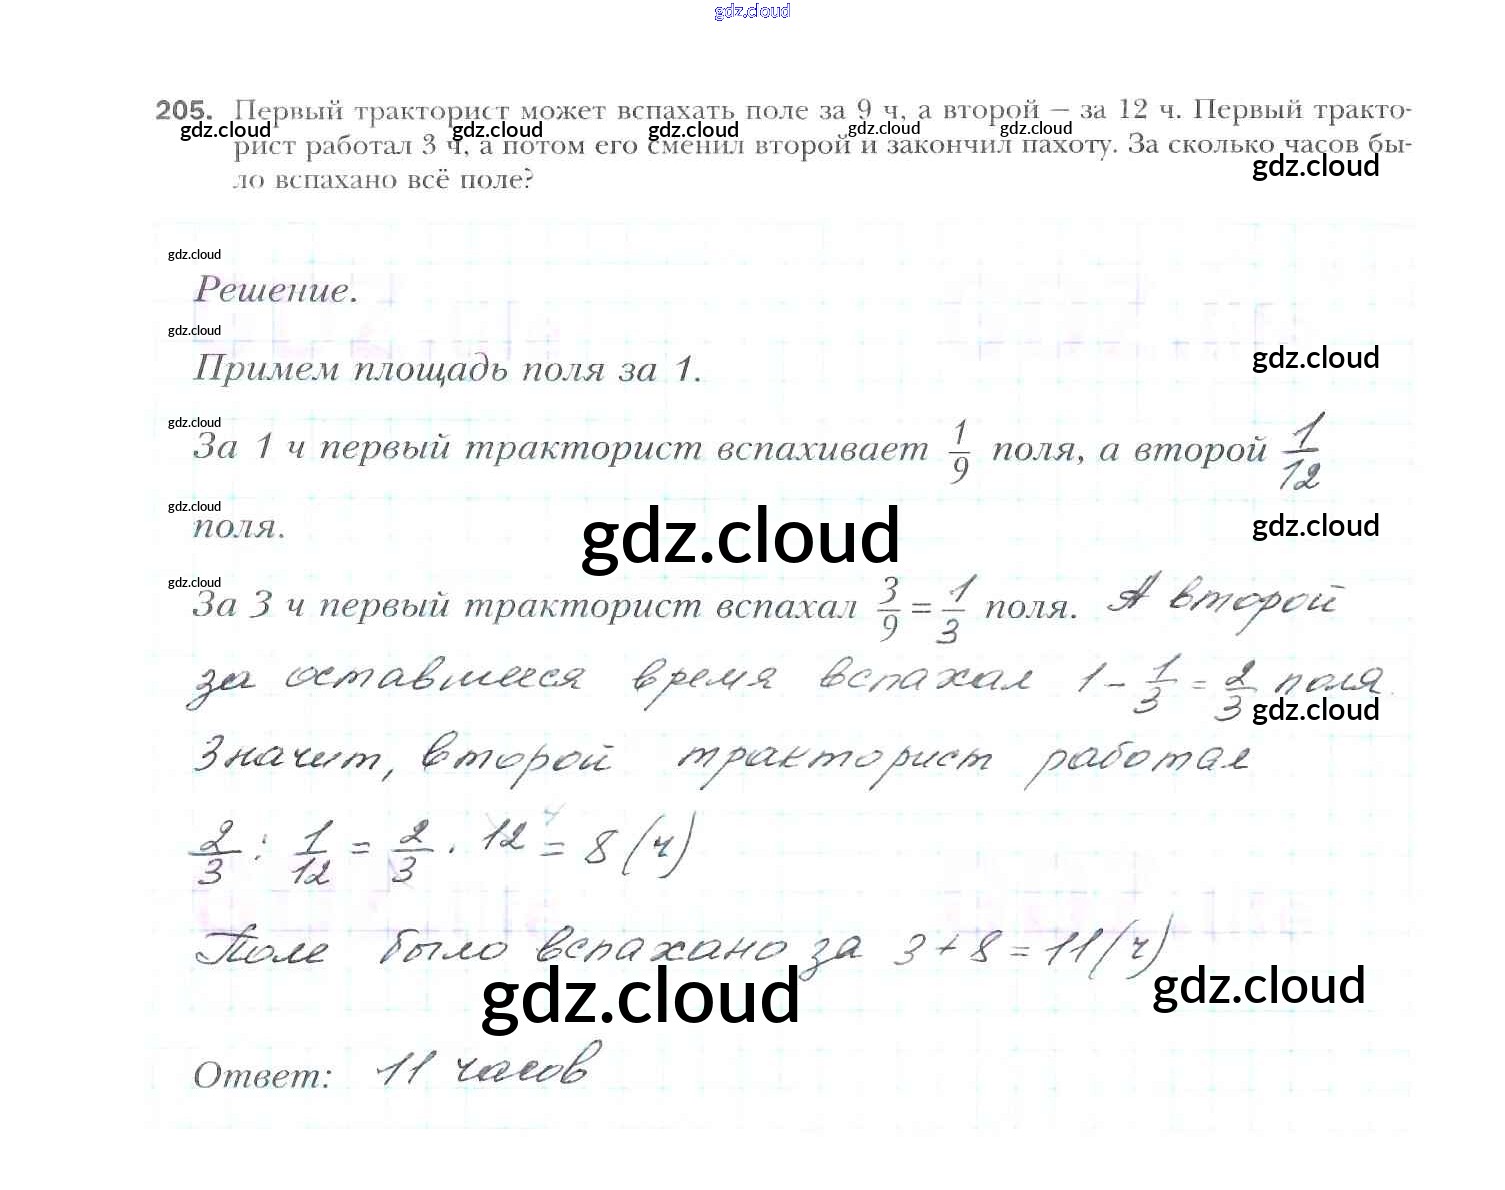 gdz.cloud
205. Первый тракторист может вспахать поле за 9 ч, а второй – за 12 ч. Первый тракто-
gdz.cloud gdz.cloud gdz.cloud gdz.cloud gdz.cloud
рист работал 3 ч, а потом его сменил второй и закончил пахоту. За сколько часов бы-
gdz.cloud
ло вспахано всё поле?
gdz.cloud
Решение.
gdz.cloud
gdz.cloud
Примем площадь поля за 1.
gdz.cloud
За 1 ч первый тракторист вспахивает 1/9 поля, а второй 1/12
gdz.cloud
поля.
gdz.cloud
gdz.cloud
gdz.cloud
За 3 ч первый тракторист вспахал 3/9 = 1/3 поля. А второй
за оставшееся время вспахал 1 - 1/3 = 2/3 поля.
gdz.cloud
Значит, второй тракторист работал
2/3 : 1/12 = 2/3 · 12 = 8 (ч)
Поле было вспахано за 3 + 8 = 11 (ч)
gdz.cloud
gdz.cloud
Ответ: 11 часов